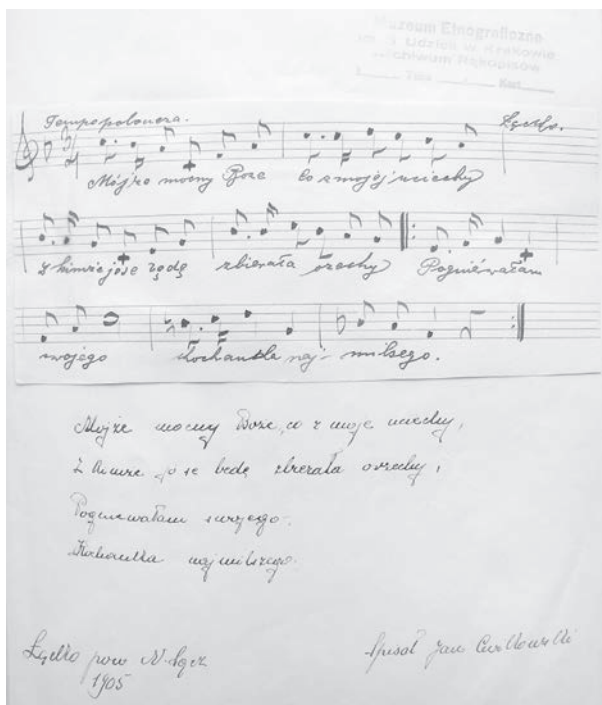 Muzeum Etnograficzne
im. S. Udzieli w Krakowie
Archiwum Rękopisów
Tempo poloneza. Łącko.
Mójże mocny Boże Co z mojéj uciechy
Z kimże jo se bądę zbierała orzechy Pogniéwałam
swojego kochanka naj- milsego.
Mojże mocny Boże, co z moje uciechy,
Z kimże jo se bede zbierała orzechy,
Pogniewałam swojego.
Kochanka najmilszego.
Łącko pow N. Sącz Spisał Jan
1905